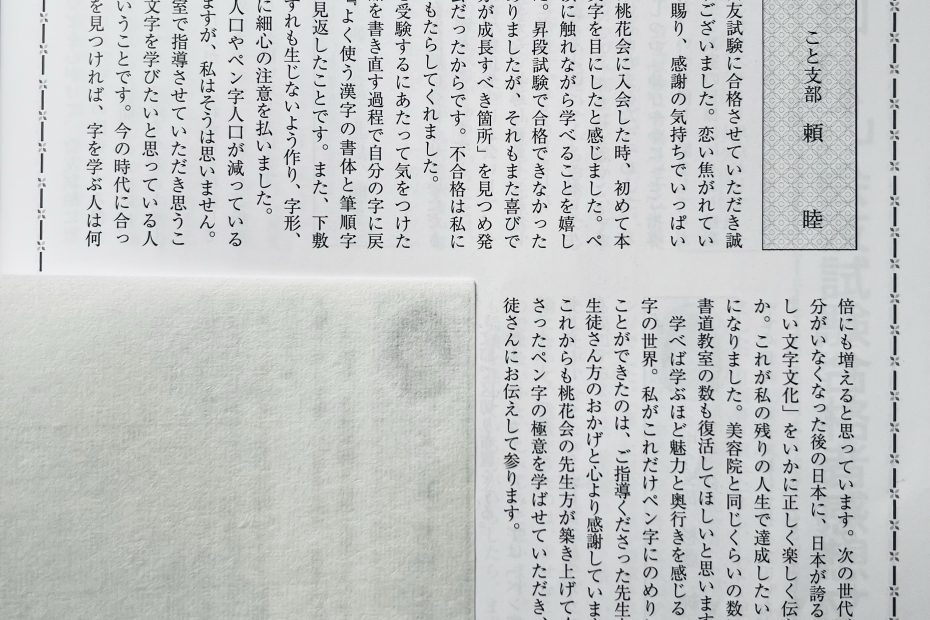 こと支部　頼　睦
友試験に合格させていただき誠
ございました。恋い焦がれてい
賜り、感謝の気持ちでいっぱい
桃花会に入会した時、初めて本
字を目にしたと感じました。ペ
に触れながら学べることを嬉し
た。昇段試験で合格できなかった
りましたが、それもまた喜びで
が成長すべき箇所」を見つめ発
だったからです。不合格は私に
もたらしてくれました。
受験するにあたって気をつけた
を書き直す過程で自分の字に戻
『よく使う漢字の書体と筆順字
見返したことです。また、下敷
ずれも生じないよう作り、字形、
に細心の注意を払いました。
人口やペン字人口が減っている
ますが、私はそうは思いません。
室で指導させていただき思うこ
文字を学びたいと思っている人
いうことです。今の時代に合っ
を見つければ、字を学ぶ人は何
倍にも増えると思っています。次の世代
分がいなくなった後の日本に、日本が誇る
しい文字文化」をいかに正しく楽しく伝
か。これが私の残りの人生で達成したい
になりました。美容院と同じくらいの数
書道教室の数も復活してほしいと思います
学べば学ぶほど魅力と奥行きを感じる
字の世界。私がこれだけペン字にのめり
ことができたのは、ご指導くださった先生
生徒さん方のおかげと心より感謝していま
これからも桃花会の先生方が築き上げて
さったペン字の極意を学ばせていただき、
徒さんにお伝えして参ります。